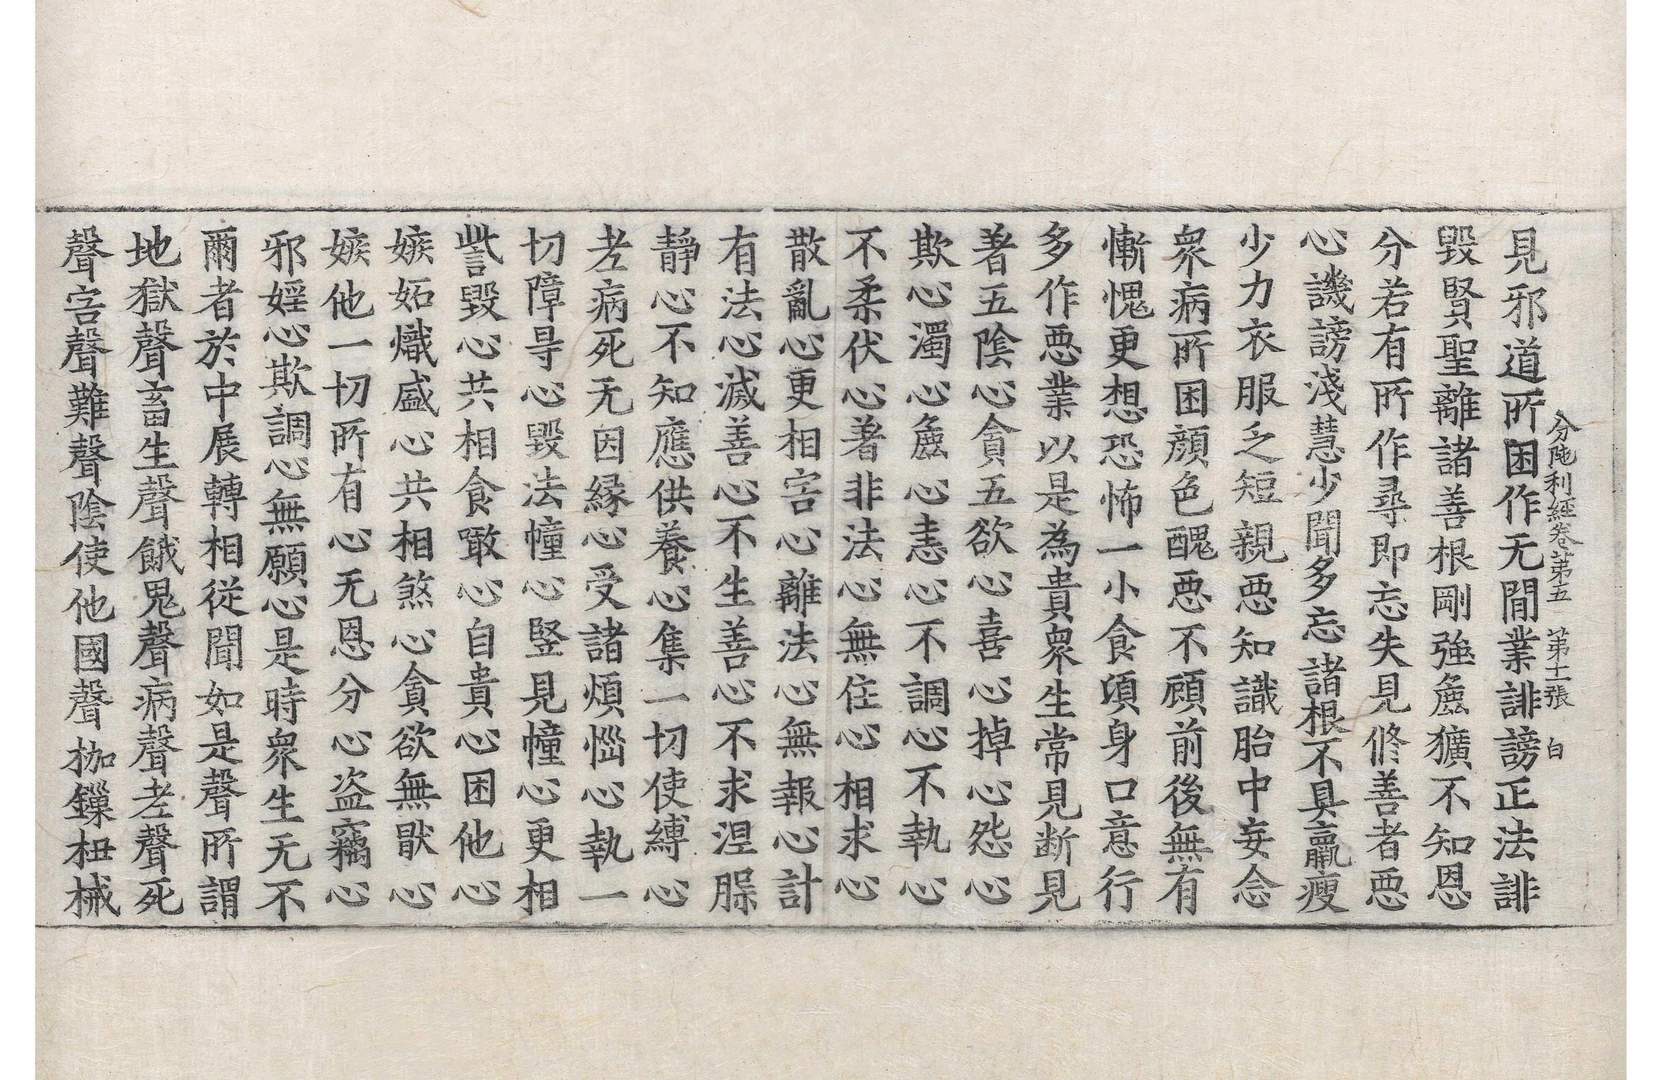 見邪道所困作无閒業誹謗正法誹
分陁利經卷第五 第十二張 白
毀賢聖離諸善根剛強麁獷不知恩
分若有所作尋即忘失見脩善者惡
心譏謗淺慧少聞多忘諸根不具羸瘦
少力衣服乏短親惡知識胎中妄念
衆病所困顏色醜惡不顧前後無有
慚愧更想恐怖一小食頃身口意行
多作惡業以是為貴衆生常見断見
著五陰心貪五欲心喜心掉心怨心
欺心濁心麁心恚心不調心不執心
不柔伏心著非法心無住心相求心
散亂心更相害心離法心無報心計
有法心滅善心不生善心不求涅槃
靜心不知應供養心集一切使縛心
老病死无因緣心受諸煩惱心執一
切障㝵心毀法幢心竪見幢心更相
呰毀心共相食噉心自貴心困他心
嫉妬熾盛心共相煞心貪欲無猒心
嫉他一切所有心无恩分心盜竊心
邪婬心欺調心無願心是時衆生无不
爾者於中展轉相從聞如是聲所謂
地獄聲畜生聲餓鬼聲病聲老聲死
聲害聲難聲陰使他國聲枷鏁杻械